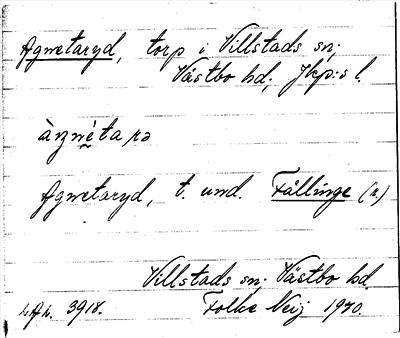 Agnetaryd, torp i Villstads sn;
Västbo hd, Jkp:s l.
àŋnèta,rə
Agnetaryd, t. und. Fållinge (u.)
Villstads sn; Västbo hd
Folke Neij 1940.
LAL. 3918.